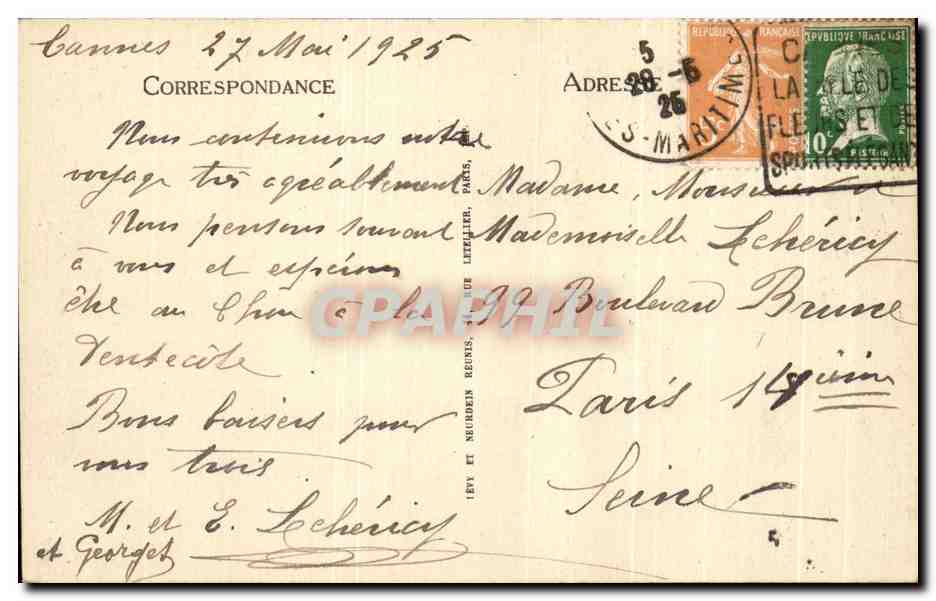 Cannes 27 Mai 1925
CORRESPONDANCE
Nous continuons notre
voyage très agréablement
Nous pensons souvent
à vous et espérons
être au à la
Pentecôte
Bons baisers pour
vous trois
M. et E. Lehéricy
et Georget
LÉVY ET NEURDEIN RÉUNIS, 44, RUE LETELLIER, PARIS
ADRESSE
5
28 -5
25
ES-MARITIMES
REPUBLIQUE FRANÇAISE
REPVBLIQVE FRANÇAISE
10c
PASTEVR
LA VILLE DES
FLEURS ET DES
SPORTS
Madame, Monsieur
Mademoiselle Lehéricy
99 Boulevard Brune
Paris 14ième
Seine
CPAPHIL